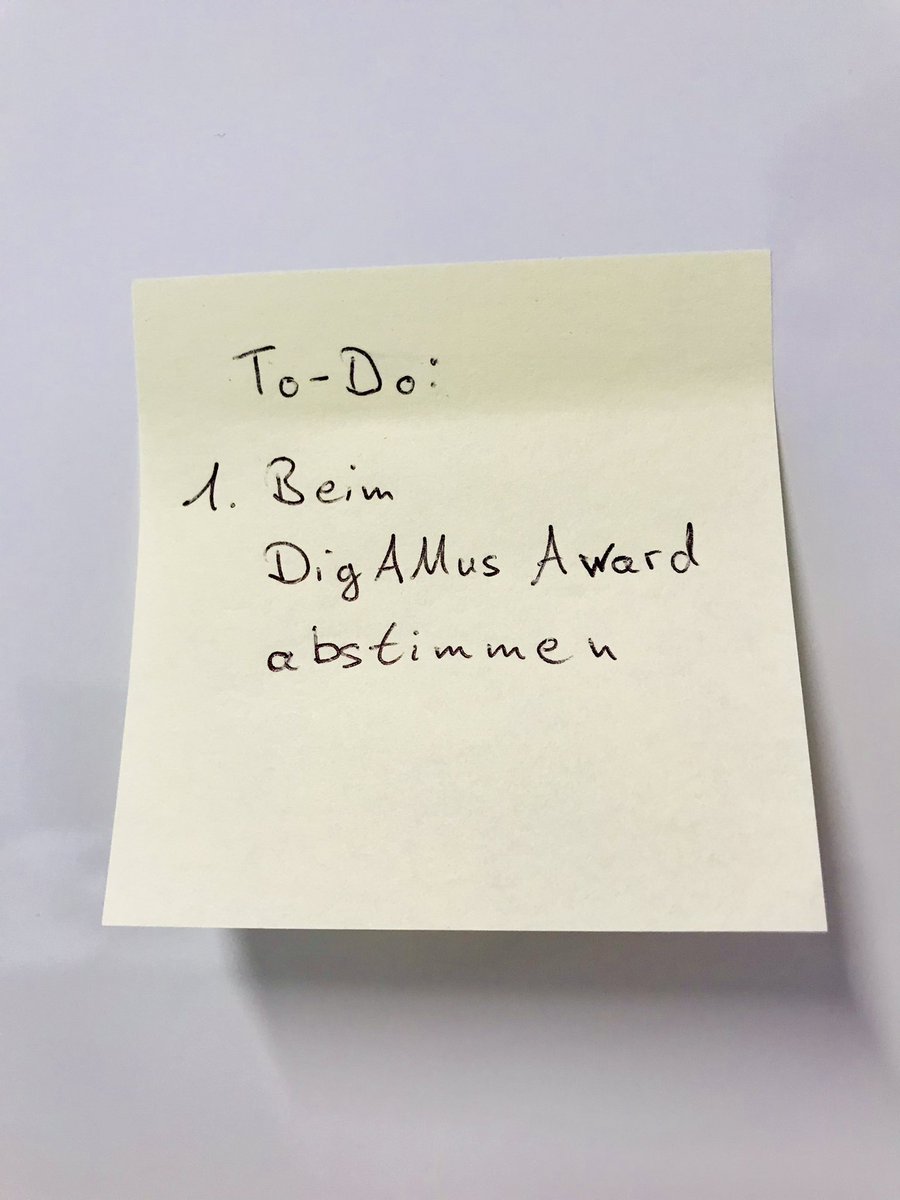 To-Do:
1. Beim
DigAMus Award
abstimmen